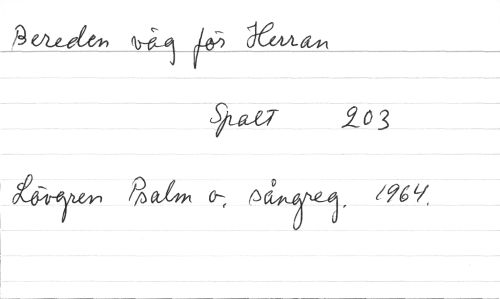 Bereden väg för Herran
Spalt 203
Lövgren Psalm o. sångreg. 1964.